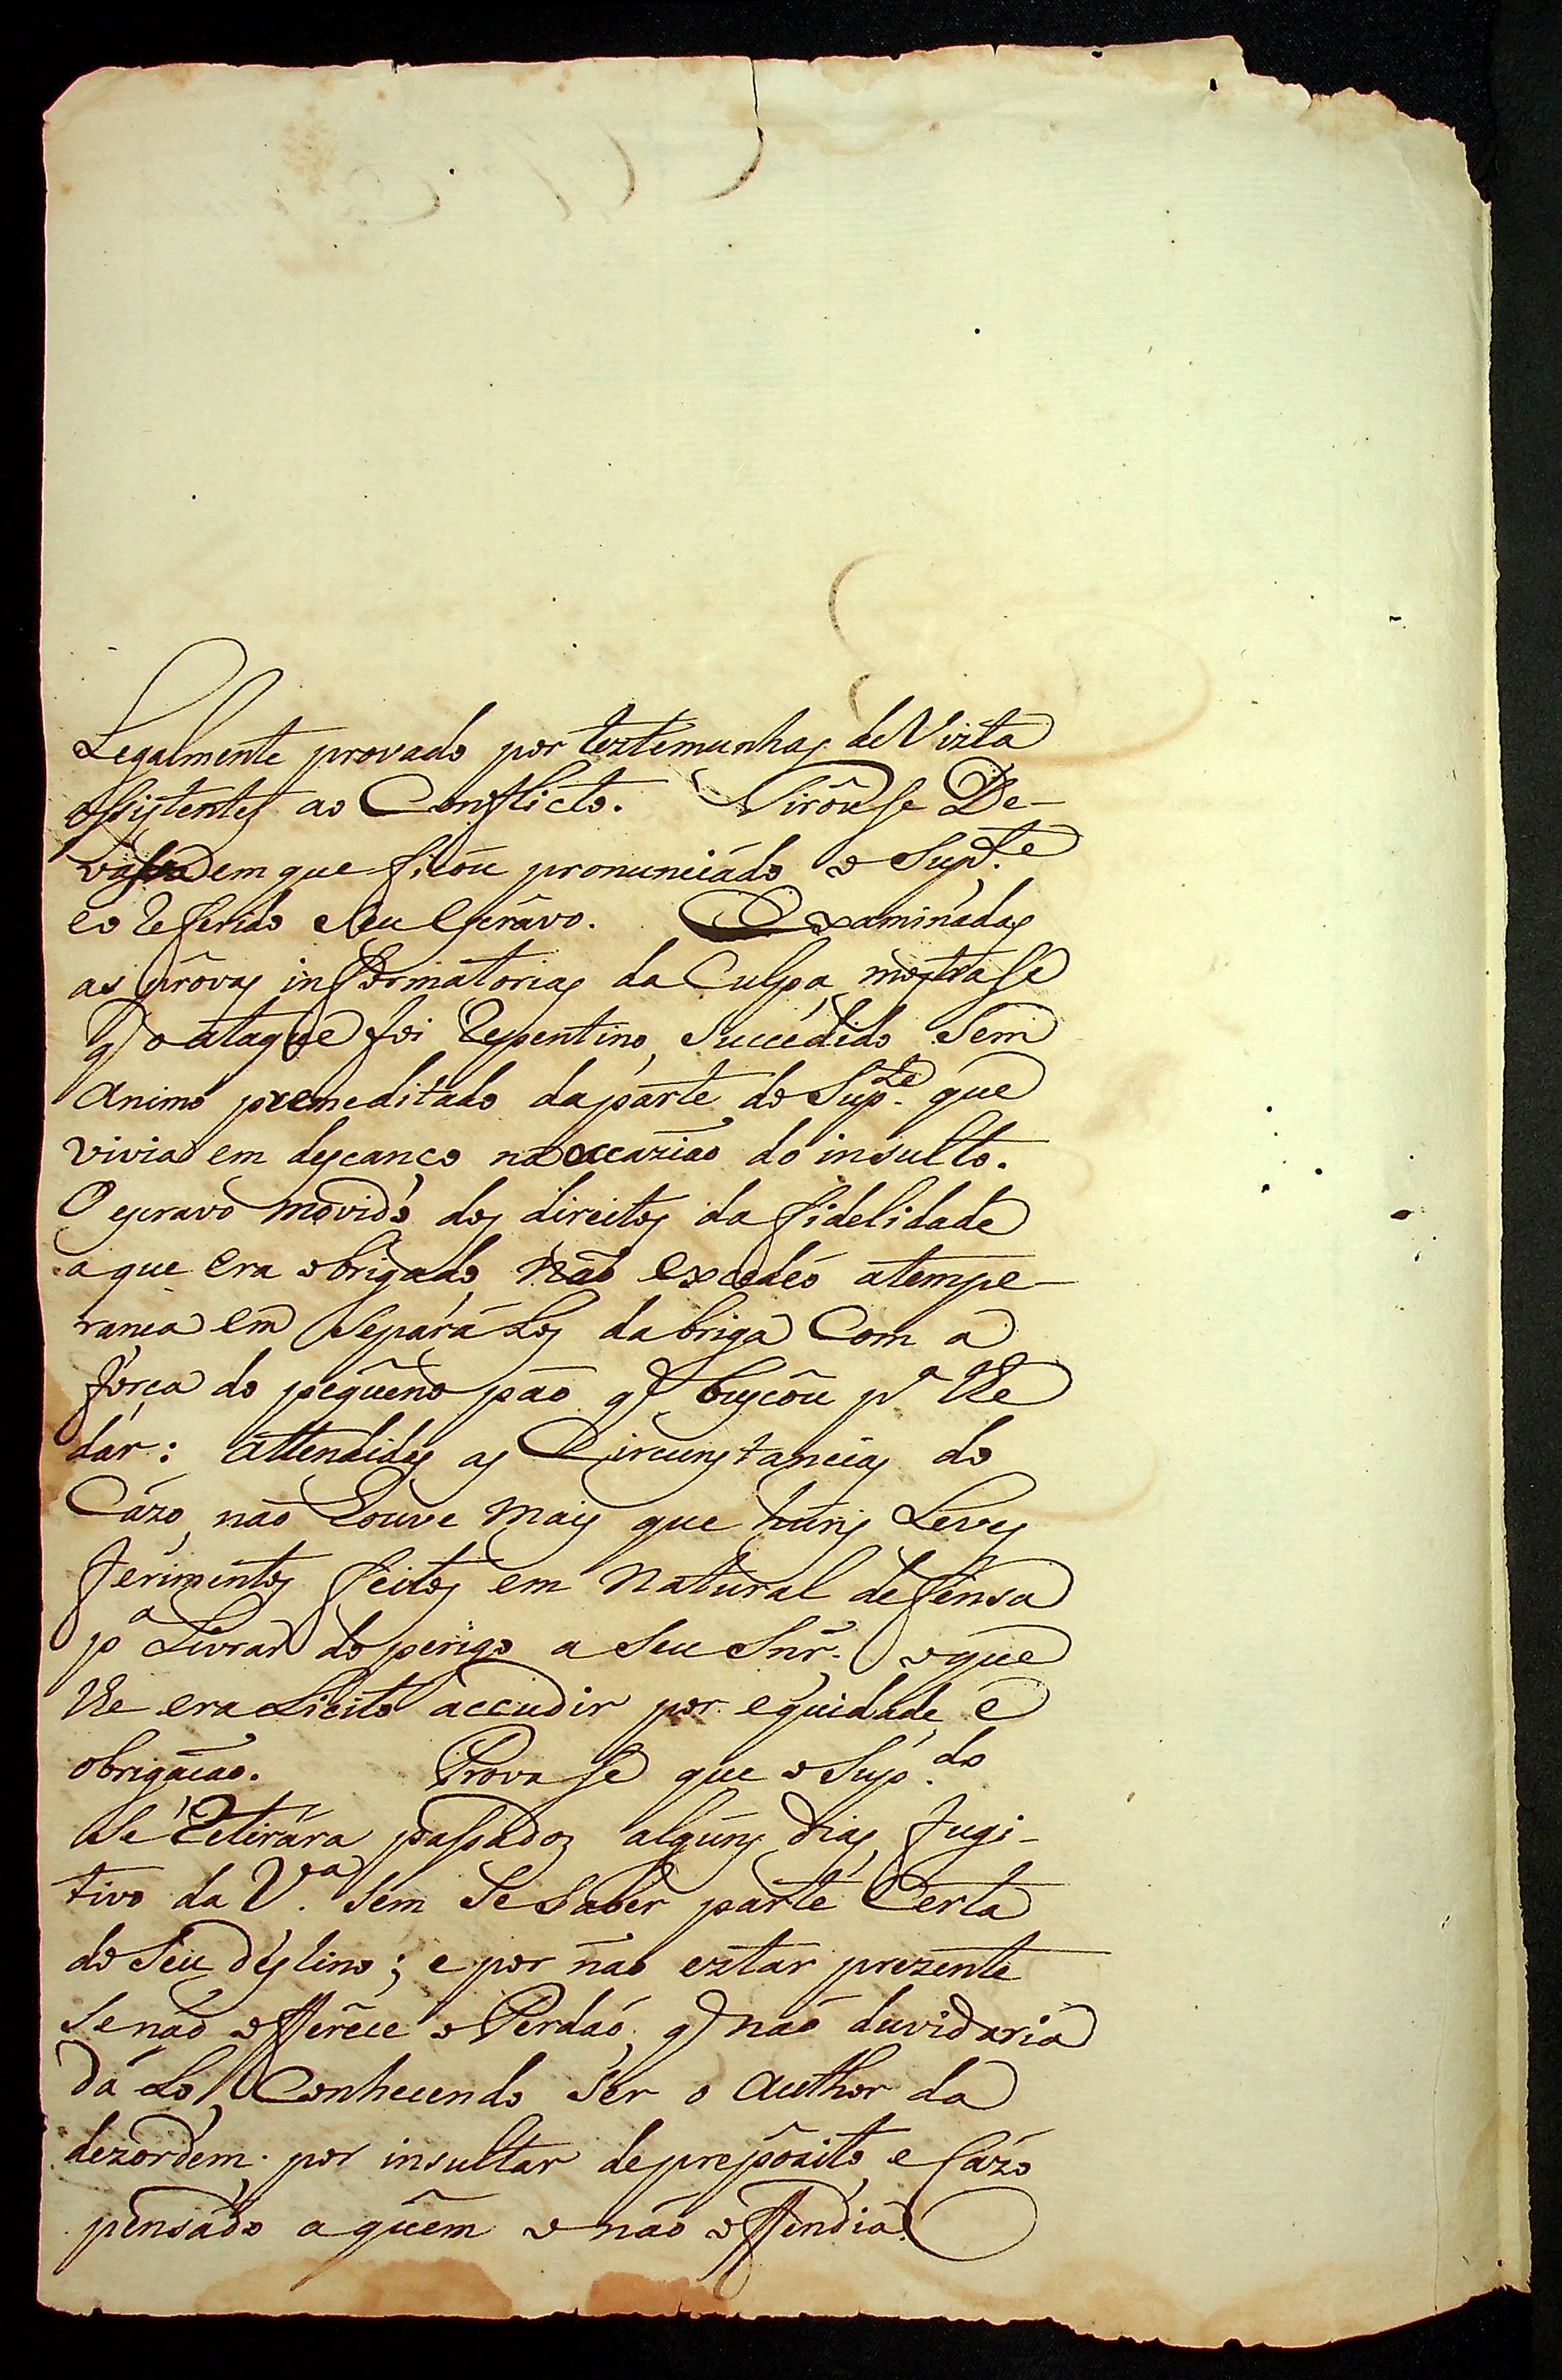 Legalmente provado por teztemunhas de Vizta
assistentes ao Conflicto. Tirouse De-
vassa em que ficou pronunciado o Supte
e o Referido Seu Escravo. Examinadas
as provas informatorias da Culpa, mostrase
q o ataque foi Repentino, Succedido Sem
animo premeditado da parte do Supte que
vivia em descanço na occazião do insulto.
O escravo movido dos direitos da fidelidade
a que era obrigado, não excedeo a tempe-
rança em Separálos da briga Com a
força do pequeno páo q buscou pa lhe
dar: attendidas as Circunstancias do
Cázo, não houve mais que huns Leves
ferimentos feitos em Natural defensa
pa Livrar do perigo a Seu Snr. o que
lhe era Licito accudir por equidade, e
obrigação. Prova se que o Supdo
Se Retirára passados alguns dias, fugi-
tivo da Va Sem Se Saber parte Certa
do Seu destino; e por não eztar prezente
Se não offerece o Perdão, q não duvidaria
dá Lo, Conhecendo Ser o Author da
dezordem por insultar de prepozito, e Cázo
pensado a quem o não offendia.